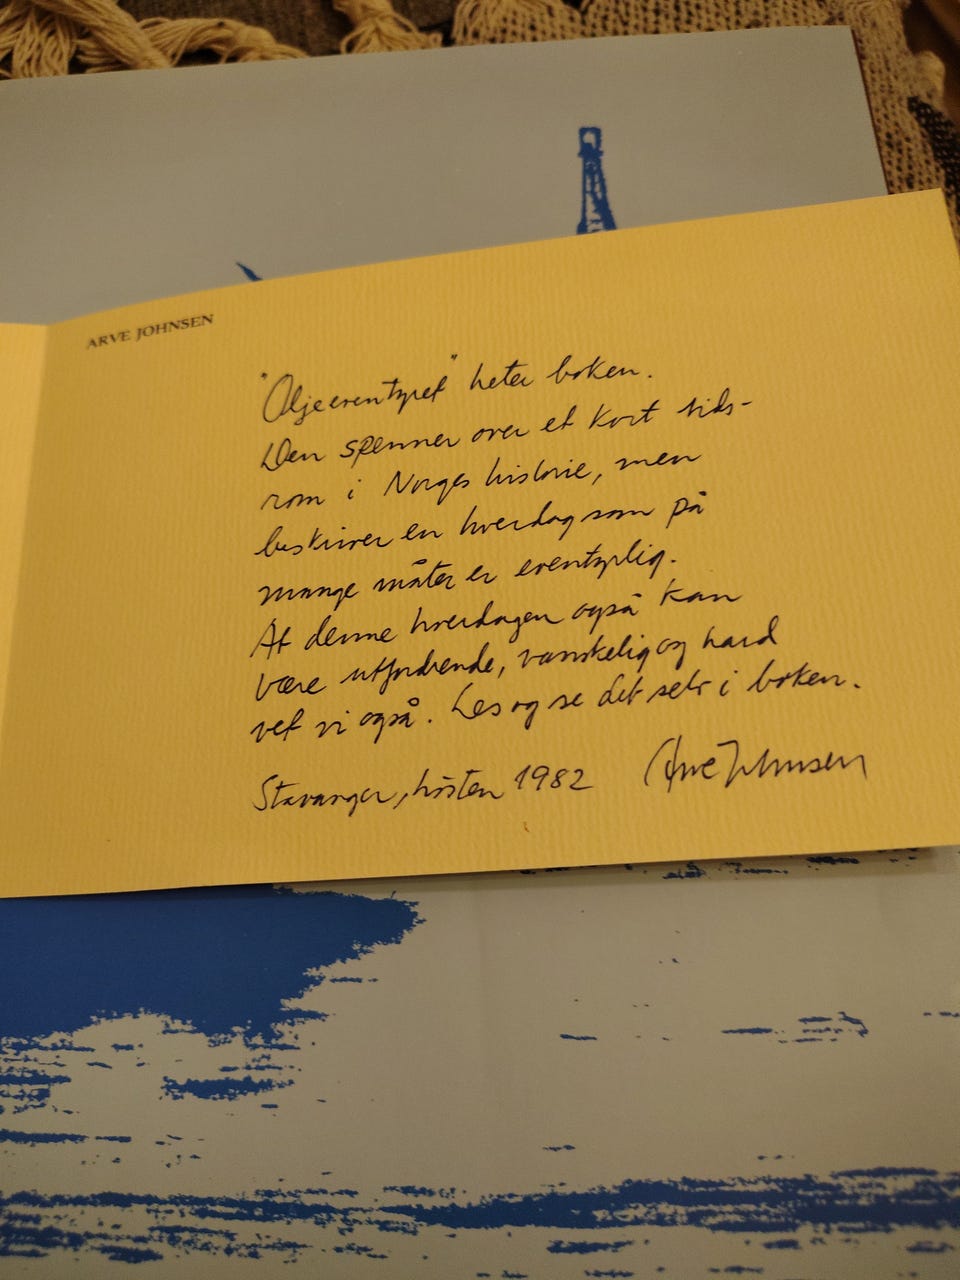 ARVE JOHNSEN
"Oljeeventyret" heter boken.
Den spenner over et kort tids-
rom i Norges historie, men
beskriver en hverdag som på
mange måter er eventyrlig.
At denne hverdagen også kan
være utfordrende, vanskelig og hard
vet vi også. Les og se det selv i boken.
Stavanger, høsten 1982 Arve Johnsen